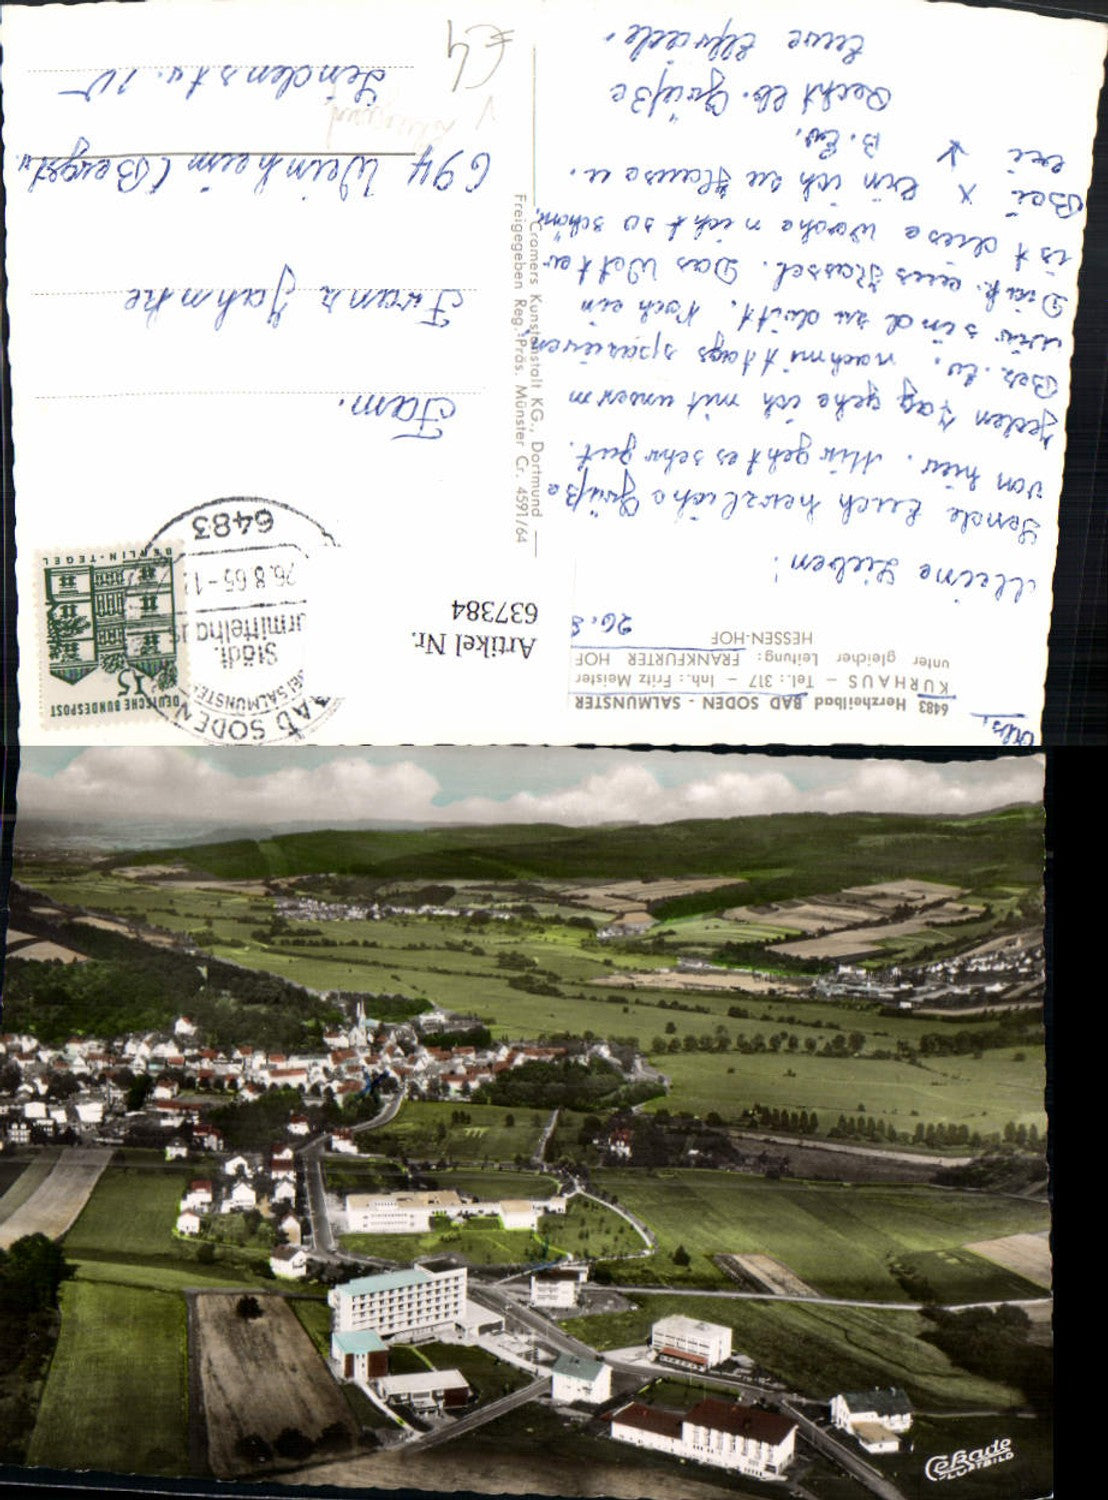 6483 Herzheilbad BAD SODEN - SALMÜNSTER
KURHAUS – Tel.: 317 – Inh.: Fritz Meister
unter gleicher Leitung: FRANKFURTER HOF
HESSEN-HOF
26.8
Meine Lieben!
Sende Euch herzliche Grüße
von hier. Mir geht es sehr gut.
Jeden Tag gehe ich mit unserm
Bez. Lv. nachmittags spazieren
wir sind zu dritt. Noch ein
Diak. aus Kassel. Das Wetter
ist diese Woche nicht so schön.
Bei X bin ich zu Hause u.
bei ↓ B. Lv.
Recht lb. Grüße
Eure Elfriede.
Cramers Kunstanstalt KG., Dortmund
Freigegeben Reg. Präs. Münster Cr. 4591/64
Artikel Nr.
637384
DEUTSCHE BUNDESPOST
15
BERLIN-TEGEL
BAD SODEN
BEI SALMÜNSTER
Städt.
26.8.65-1
6483
Fam.
Franz Jahnke
694 Weinheim (Bergstr.
Lindenstr. 10
€4
Cekade
LUFTBILD